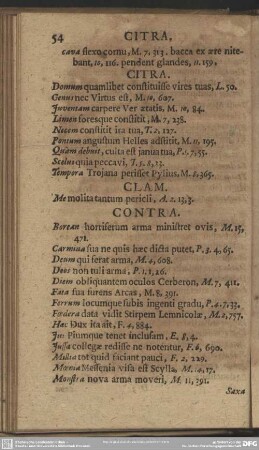 54 CITRA,
cava flexo cornu, M. 7. 313. bacca ex ære nite-
bant, 10, 116. pendent glandes, 11. 159.
CITRA.
Domum quamlibet constituisse vires tuas, L. 50.
Genus nec Virtus est, M. 10. 607.
Juventam carpere Ver ætatis. M. 10, 84.
Limen foresque constitit, M. 7, 238.
Necem constitit ira tua, T. 2. 127.
Pontum angustum Helles adstitit, M. 11. 195.
Quam debuit, cuita est janua tua, P. 1. 7, 55.
Scelus quia peccavi, T. 5. 8, 23.
Tempora Trojana periisset Pylius, M. 8, 365.
CLAM.
Me molita tantum pericli, A. 2. 13, 3.
CONTRA.
Borean horriferum arma ministret ovis, M. 15,
471.
Carmina sua ne quis hæc dicta putet, P. 3. 4, 65.
Deum qui ferat arma, M. 4, 608.
Deos non tuli arma, P. 1. 1, 26.
Diem obliquantem oculos Cerberon, M. 7, 411.
Fata sua furens Arcas, M. 8, 391.
Ferrum locumque subis ingenti gradu, P. 4. 7, 33.
Fœdera data vidit Stirpem Lemnicolæ, M. 2, 757.
Hæc Dux ita sit, F. 4, 884.
Jus Piumque tenet inclusam, E. 8, 4.
Jussa collegæ redisse ne notentur, F. 6, 690.
Multa tot quid faciant pauci, F. 2, 229.
Mœnia Messenia visa est Scylla, M. 14, 17.
Monstra nova arma moveri, M. 11, 391.
Saxa